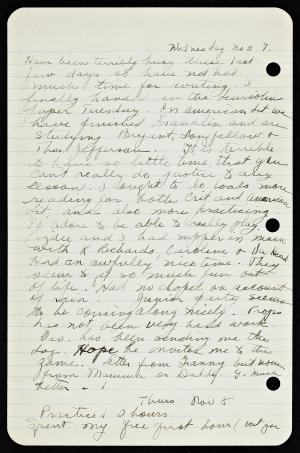 Wednesday Nov 7.
Have been terribly busy these last
few days so have not had
much time for writing. I
finally handed in the
paper Tuesday. In American Lit we
have finished Franklin and are
studying Bryant, Longfellow &
Thos. Jefferson. It's terrible
to have so little time, that you
can't really do justice to any
lesson. I ought to do loads more
reading for both Crit and American
Lit. and also more practicing.
I'd adore to be able to really play.
and I had supper in main
with K Richards, Caroline &
Had an awfully nice time. They
seem to get so much fun out
of life. Had no chapel on account
of rain. Junior party seems
to be coming along nicely. Props
has not been very hard work.
Geo. has been sending me the
Log. Hope he invites me to the
game. Letter from Franny but none
from Mummie or Daddy. G- much
better - !
Thurs Nov 8
Practiced 2 hours.
Spent my free first hour (